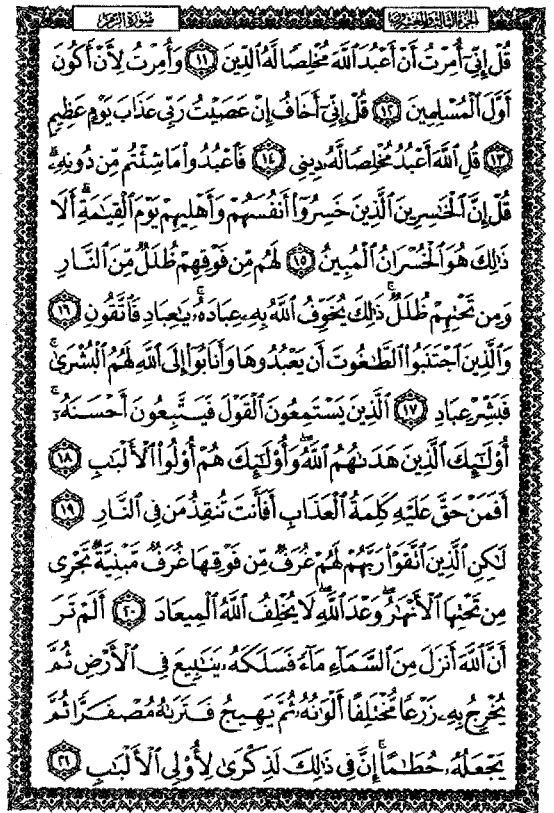 الجزء الثالث والعشرون
سورة الزمر
قُلْ إِنِّىٓ أُمِرْتُ أَنْ أَعْبُدَ ٱللَّهَ مُخْلِصًا لَّهُ ٱلدِّينَ ١١ وَأُمِرْتُ لِأَنْ أَكُونَ
أَوَّلَ ٱلْمُسْلِمِينَ ١٢ قُلْ إِنِّىٓ أَخَافُ إِنْ عَصَيْتُ رَبِّى عَذَابَ يَوْمٍ عَظِيمٍ
١٣ قُلِ ٱللَّهَ أَعْبُدُ مُخْلِصًا لَّهُۥ دِينِى ١٤ فَٱعْبُدُوا۟ مَا شِئْتُم مِّن دُونِهِۦ ۗ
قُلْ إِنَّ ٱلْخَٰسِرِينَ ٱلَّذِينَ خَسِرُوٓا۟ أَنفُسَهُمْ وَأَهْلِيهِمْ يَوْمَ ٱلْقِيَٰمَةِ ۗ أَلَا
ذَٰلِكَ هُوَ ٱلْخُسْرَانُ ٱلْمُبِينُ ١٥ لَهُم مِّن فَوْقِهِمْ ظُلَلٌ مِّنَ ٱلنَّارِ
وَمِن تَحْتِهِمْ ظُلَلٌ ۚ ذَٰلِكَ يُخَوِّفُ ٱللَّهُ بِهِۦ عِبَادَهُۥ ۚ يَٰعِبَادِ فَٱتَّقُونِ ١٦
وَٱلَّذِينَ ٱجْتَنَبُوا۟ ٱلطَّٰغُوتَ أَن يَعْبُدُوهَا وَأَنَابُوٓا۟ إِلَى ٱللَّهِ لَهُمُ ٱلْبُشْرَىٰ ۚ
فَبَشِّرْ عِبَادِ ١٧ ٱلَّذِينَ يَسْتَمِعُونَ ٱلْقَوْلَ فَيَتَّبِعُونَ أَحْسَنَهُۥٓ ۚ
أُو۟لَٰٓئِكَ ٱلَّذِينَ هَدَىٰهُمُ ٱللَّهُ ۖ وَأُو۟لَٰٓئِكَ هُمْ أُو۟لُوا۟ ٱلْأَلْبَٰبِ ١٨
أَفَمَنْ حَقَّ عَلَيْهِ كَلِمَةُ ٱلْعَذَابِ أَفَأَنتَ تُنقِذُ مَن فِى ٱلنَّارِ ١٩
لَٰكِنِ ٱلَّذِينَ ٱتَّقَوْا۟ رَبَّهُمْ لَهُمْ غُرَفٌ مِّن فَوْقِهَا غُرَفٌ مَّبْنِيَّةٌ تَجْرِى
مِن تَحْتِهَا ٱلْأَنْهَٰرُ ۖ وَعْدَ ٱللَّهِ ۖ لَا يُخْلِفُ ٱللَّهُ ٱلْمِيعَادَ ٢٠ أَلَمْ تَرَ
أَنَّ ٱللَّهَ أَنزَلَ مِنَ ٱلسَّمَآءِ مَآءً فَسَلَكَهُۥ يَنَٰبِيعَ فِى ٱلْأَرْضِ ثُمَّ
يُخْرِجُ بِهِۦ زَرْعًا مُّخْتَلِفًا أَلْوَٰنُهُۥ ثُمَّ يَهِيجُ فَتَرَىٰهُ مُصْفَرًّا ثُمَّ
يَجْعَلُهُۥ حُطَٰمًا ۚ إِنَّ فِى ذَٰلِكَ لَذِكْرَىٰ لِأُو۟لِى ٱلْأَلْبَٰبِ ٢١